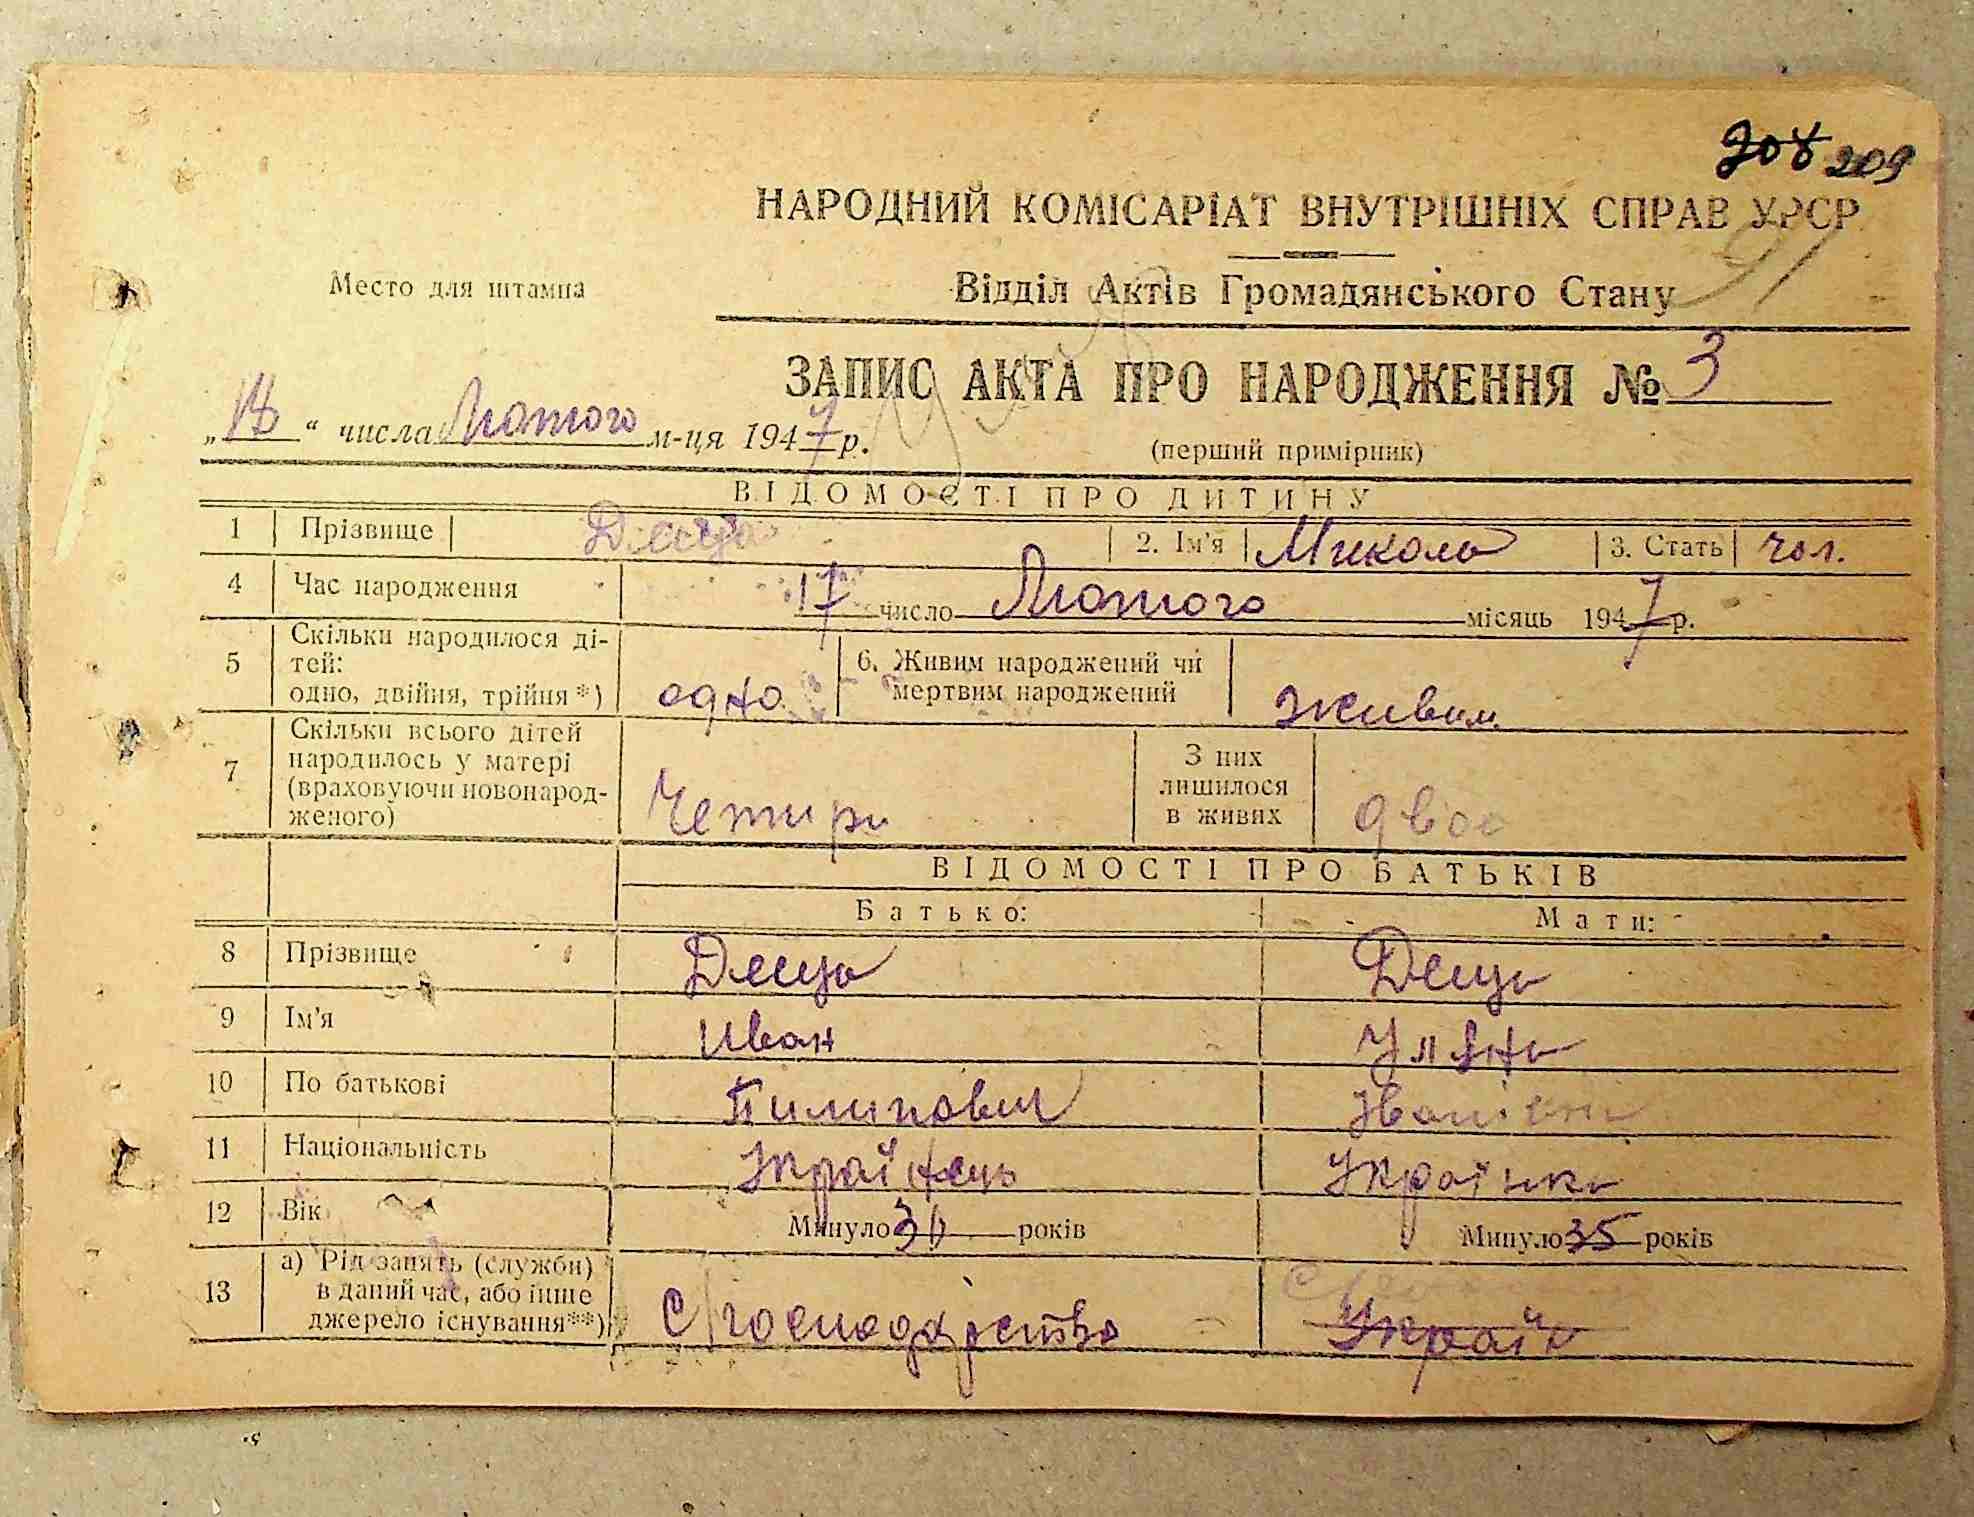 208 209
НАРОДНИЙ КОМІСАРІАТ ВНУТРІШНІХ СПРАВ УРСР
91
Место для штампа
Відділ Актів Громадянського Стану
ЗАПИС АКТА ПРО НАРОДЖЕННЯ № 3
„18“ числа Лютого м-ця 1947 р.
(перший примірник)
ВІДОМОСТІ ПРО ДИТИНУ
1 Прізвище 2. Ім'я Микола 3. Стать чол.
4 Час народження 17 число Лютого місяць 1947 р.
5 Скільки народилося ді-
тей:
одно, двійня, трійня *) одно 6. Живим народжений чи
мертвим народжений живим
7 Скільки всього дітей
народилось у матері
(враховуючи новонарод-
женого) Четири З них
лишилося
в живих двоє
ВІДОМОСТІ ПРО БАТЬКІВ
Батько: Мати:
8 Прізвище
9 Ім'я Иван Уляна
10 По батькові Пилипович Іванівна
11 Національність Українець Українка
12 Вік Минуло років Минуло 35 років
13 а) Рід занять (служби)
в даний час, або інше
джерело існування**) С/господарство Україн